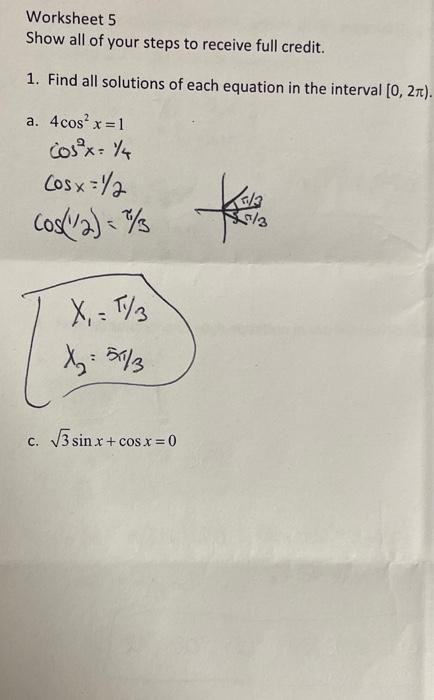 Worksheet 5
Show all of your steps to receive full credit.
1. Find all solutions of each equation in the interval [0, 2π).
a. 4cos² x = 1
cos²x = 1/4
cosx = 1/2
cos(1/2) = π/3
π/3
5π/3
X₁ = π/3
X₂ = 5π/3
c. √3 sin x + cos x = 0